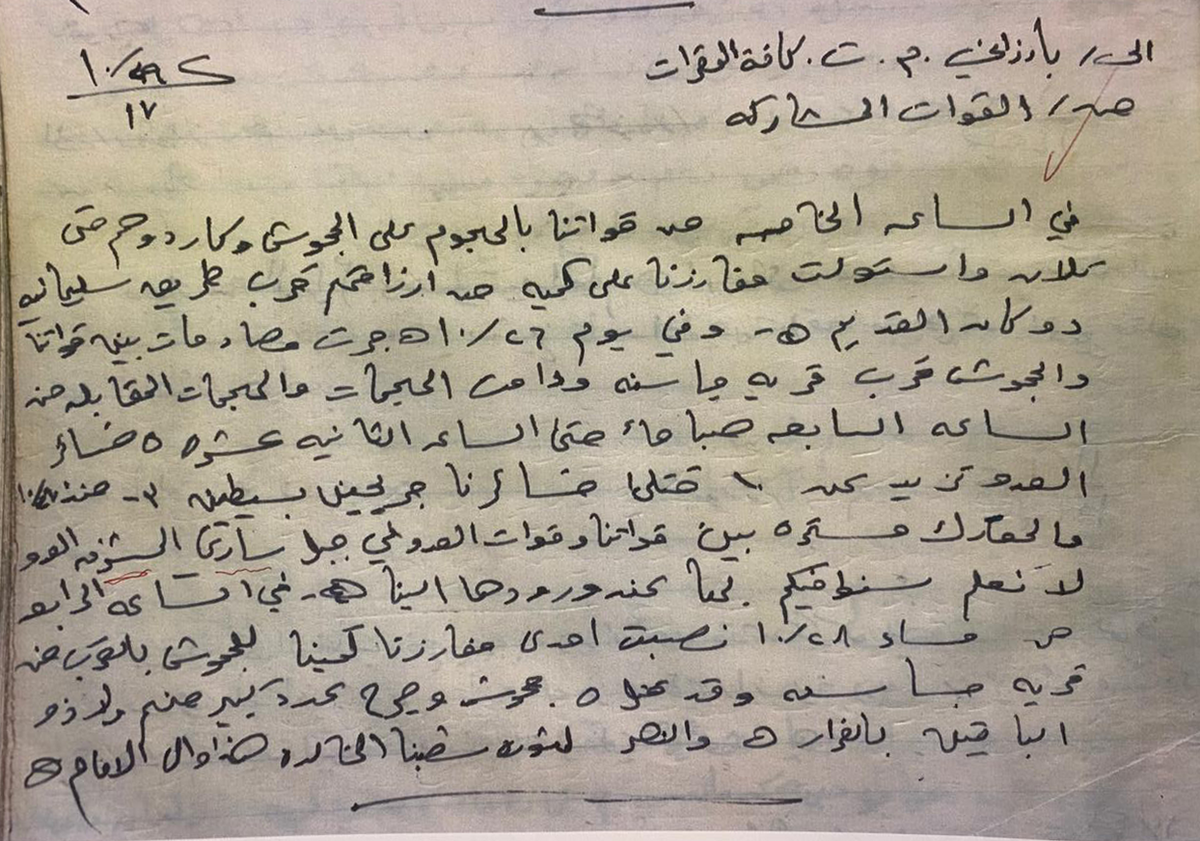 الى / بارزاني . م . ت . كافة المقرات
١٠/٢٩
١٧
من / القوات المشاركه
في الساعه الخامسه من قواتنا بالهجوم على الجحوش وكاردوحم حتى
كلان واستولت مفارزنا على كميه من ارزاقهم قرب طريق سليمانيه
دوكان القديم هـ - وفي يوم ١٠/٢٦ جرت مصادمات بين قواتنا
والجحوش قرب قريه جاسنه ودامت الهجمات والهجمات المقابله من
الساعه السابعه صباحا حتى الساعه الثانيه عشره ٥ خسائر
العدو تزيد عن ١٠ قتلى خسائرنا جريحين بسيطين ٣- منذ
والمعارك مستمره بين قواتنا وقوات العدو في جبل العدو
لا نعلم بها عند ورودها الينا هـ - في الساعه الرابعه
من مساء ١٠/٢٨ نصبت احدى مفارزنا كمينا للجحوش بالقرب من
قريه جاسنه وقد قتل ٥ جحوش وجرح عدد كبير منهم ولاذو
الباقين بالفرار هـ والنصر لثوره شعبنا الخالده والى الامام هـ